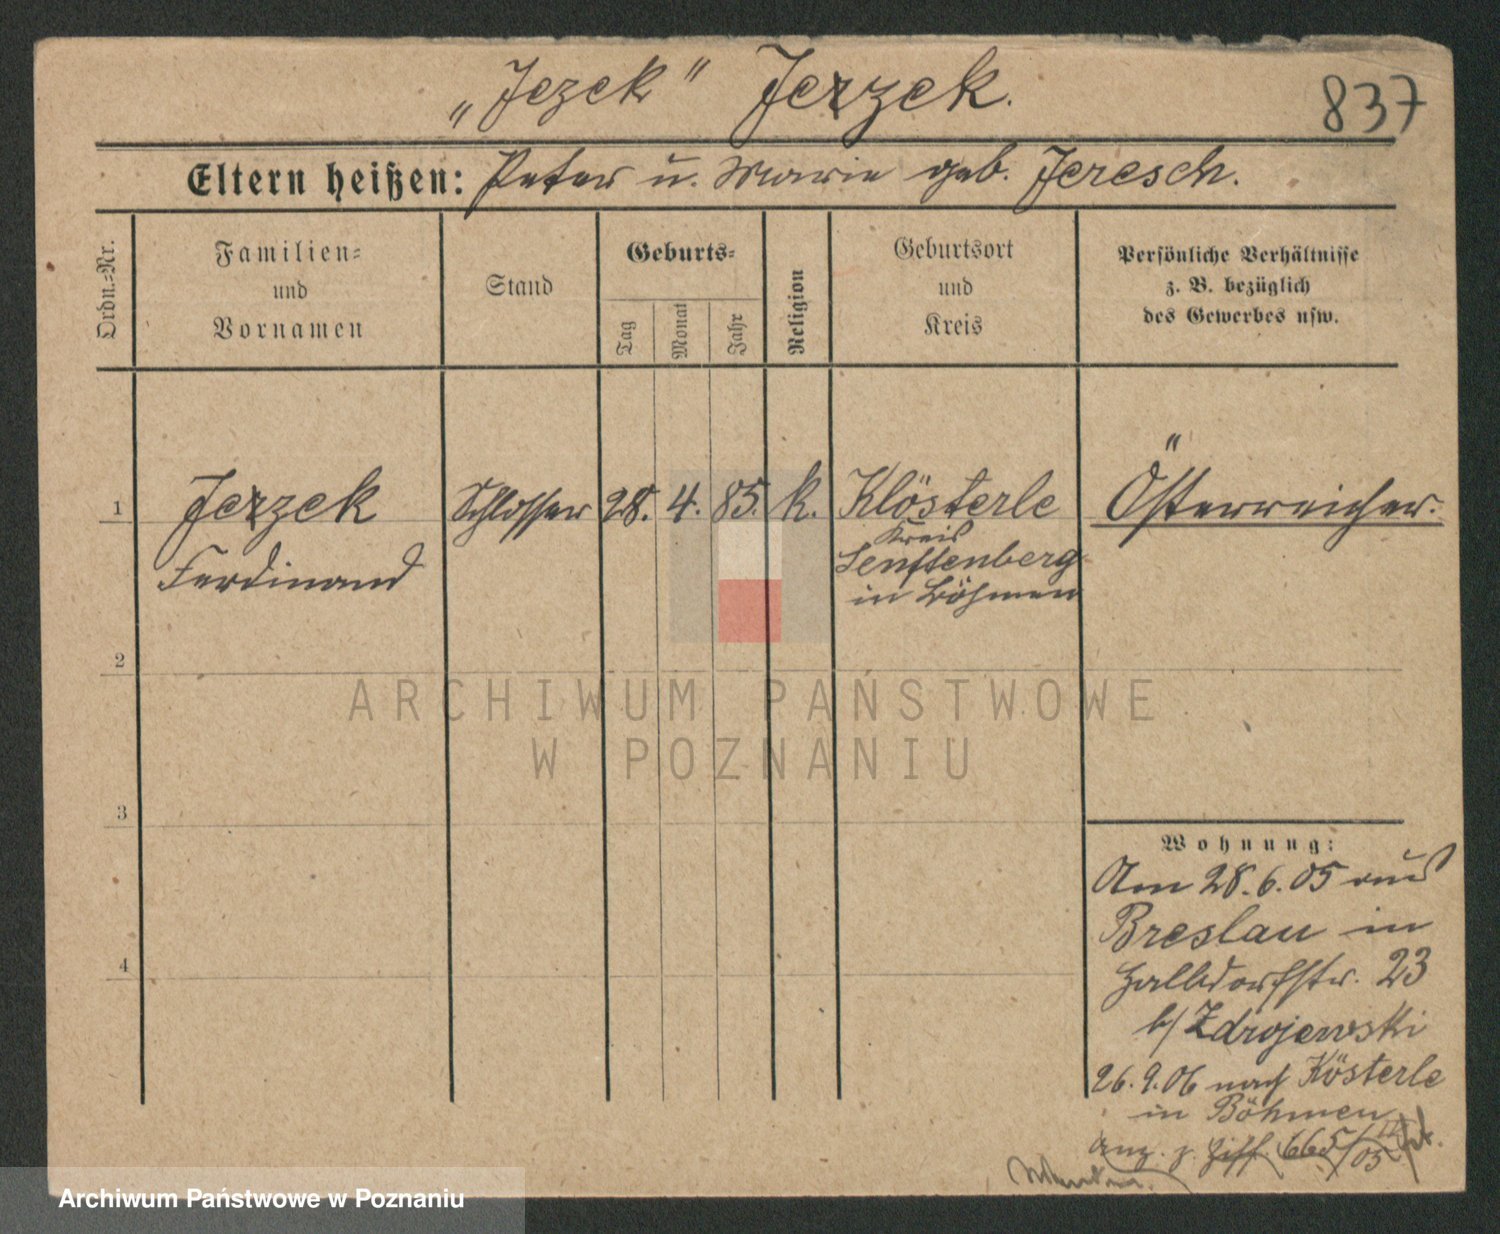 „Jezek" Jerzek.
837
Eltern heißen: Peter u. Marie geb. Jeresch.
Ordn.-Nr.
Familien-
und
Vornamen
Stand
Geburts-
Tag
Monat
Jahr
Religion
Geburtsort
und
Kreis
Persönliche Verhältnisse
z. B. bezüglich
des Gewerbes usw.
1 Jerzek Schlosser 28. 4. 85. k. Klösterle Österreicher.
Ferdinand
Kreis
Senftenberg
in Böhmen
2
ARCHIWUM PAŃSTWOWE
W POZNANIU
3
Wohnung:
Am 28.6.05 aus
Breslau in
Halbdorfstr. 23
b/ Zdrojewski
4
26.9.06 nach Kösterle
in Böhmen
Anz. z. Ziff. 665/05
Archiwum Państwowe w Poznaniu